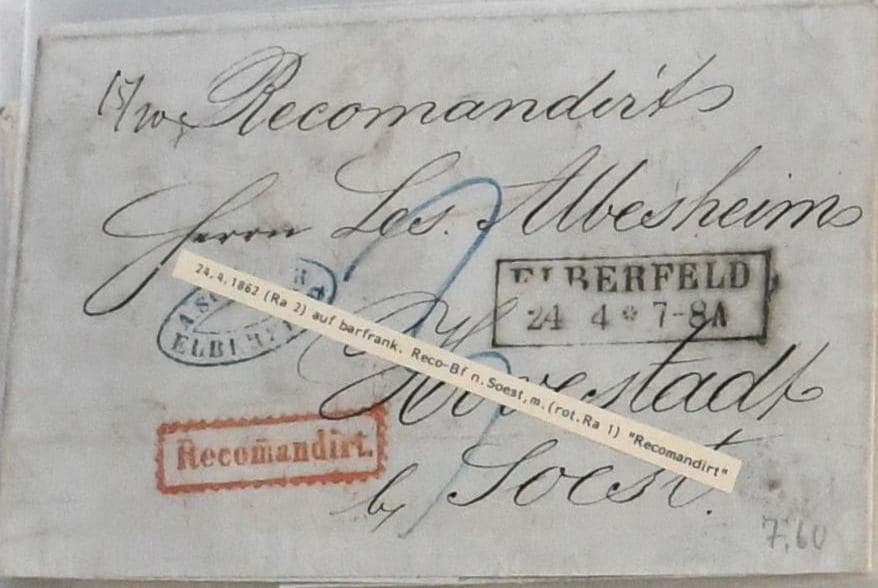 Recomandirt
Herrn Les. Albesheim
ELBERFELD
24 4 * 7-8A
24.4.1862 (Ra 2) auf barfrank. Reco-Bf n.Soest,m.(rot.Ra 1) "Recomandirt"
ELBERFELD
Hovestadt
Recomandirt.
by Soest.
7.60